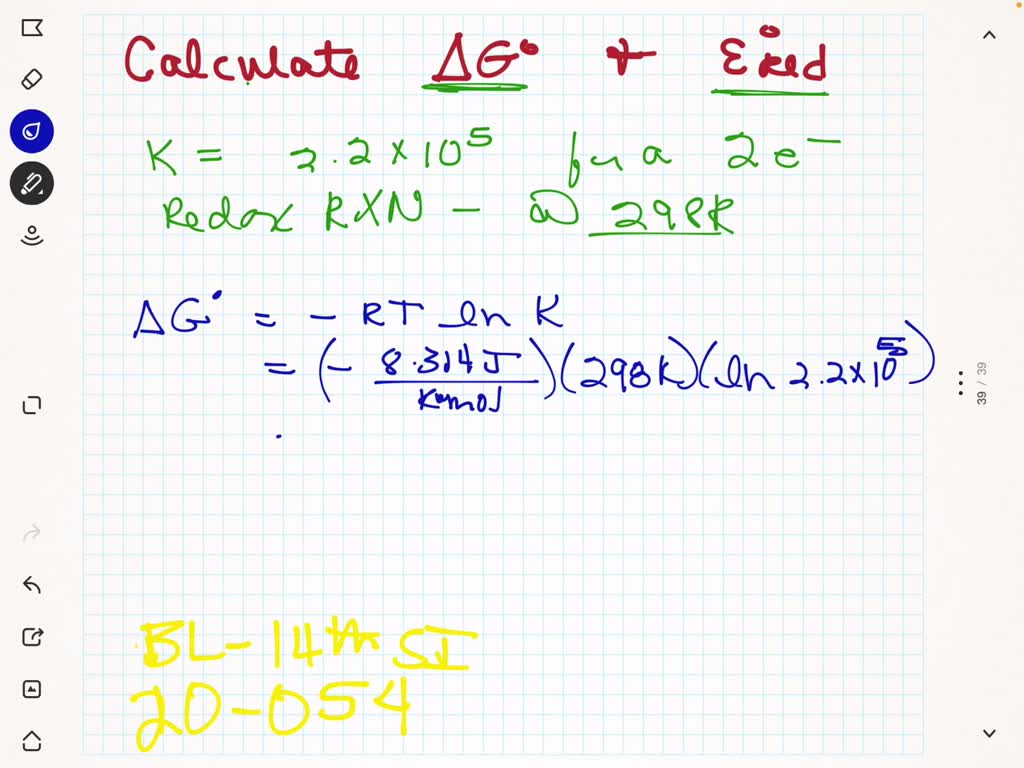 Calculate ΔG° + E°red
K = 2.2×10⁵ for a 2e⁻
Redox RXN - @ 298K
ΔG° = - RT ln K
= (- 8.314J / K·mol)(298K)(ln 2.2×10⁵)
39 / 39
BL-14th SI
20-054